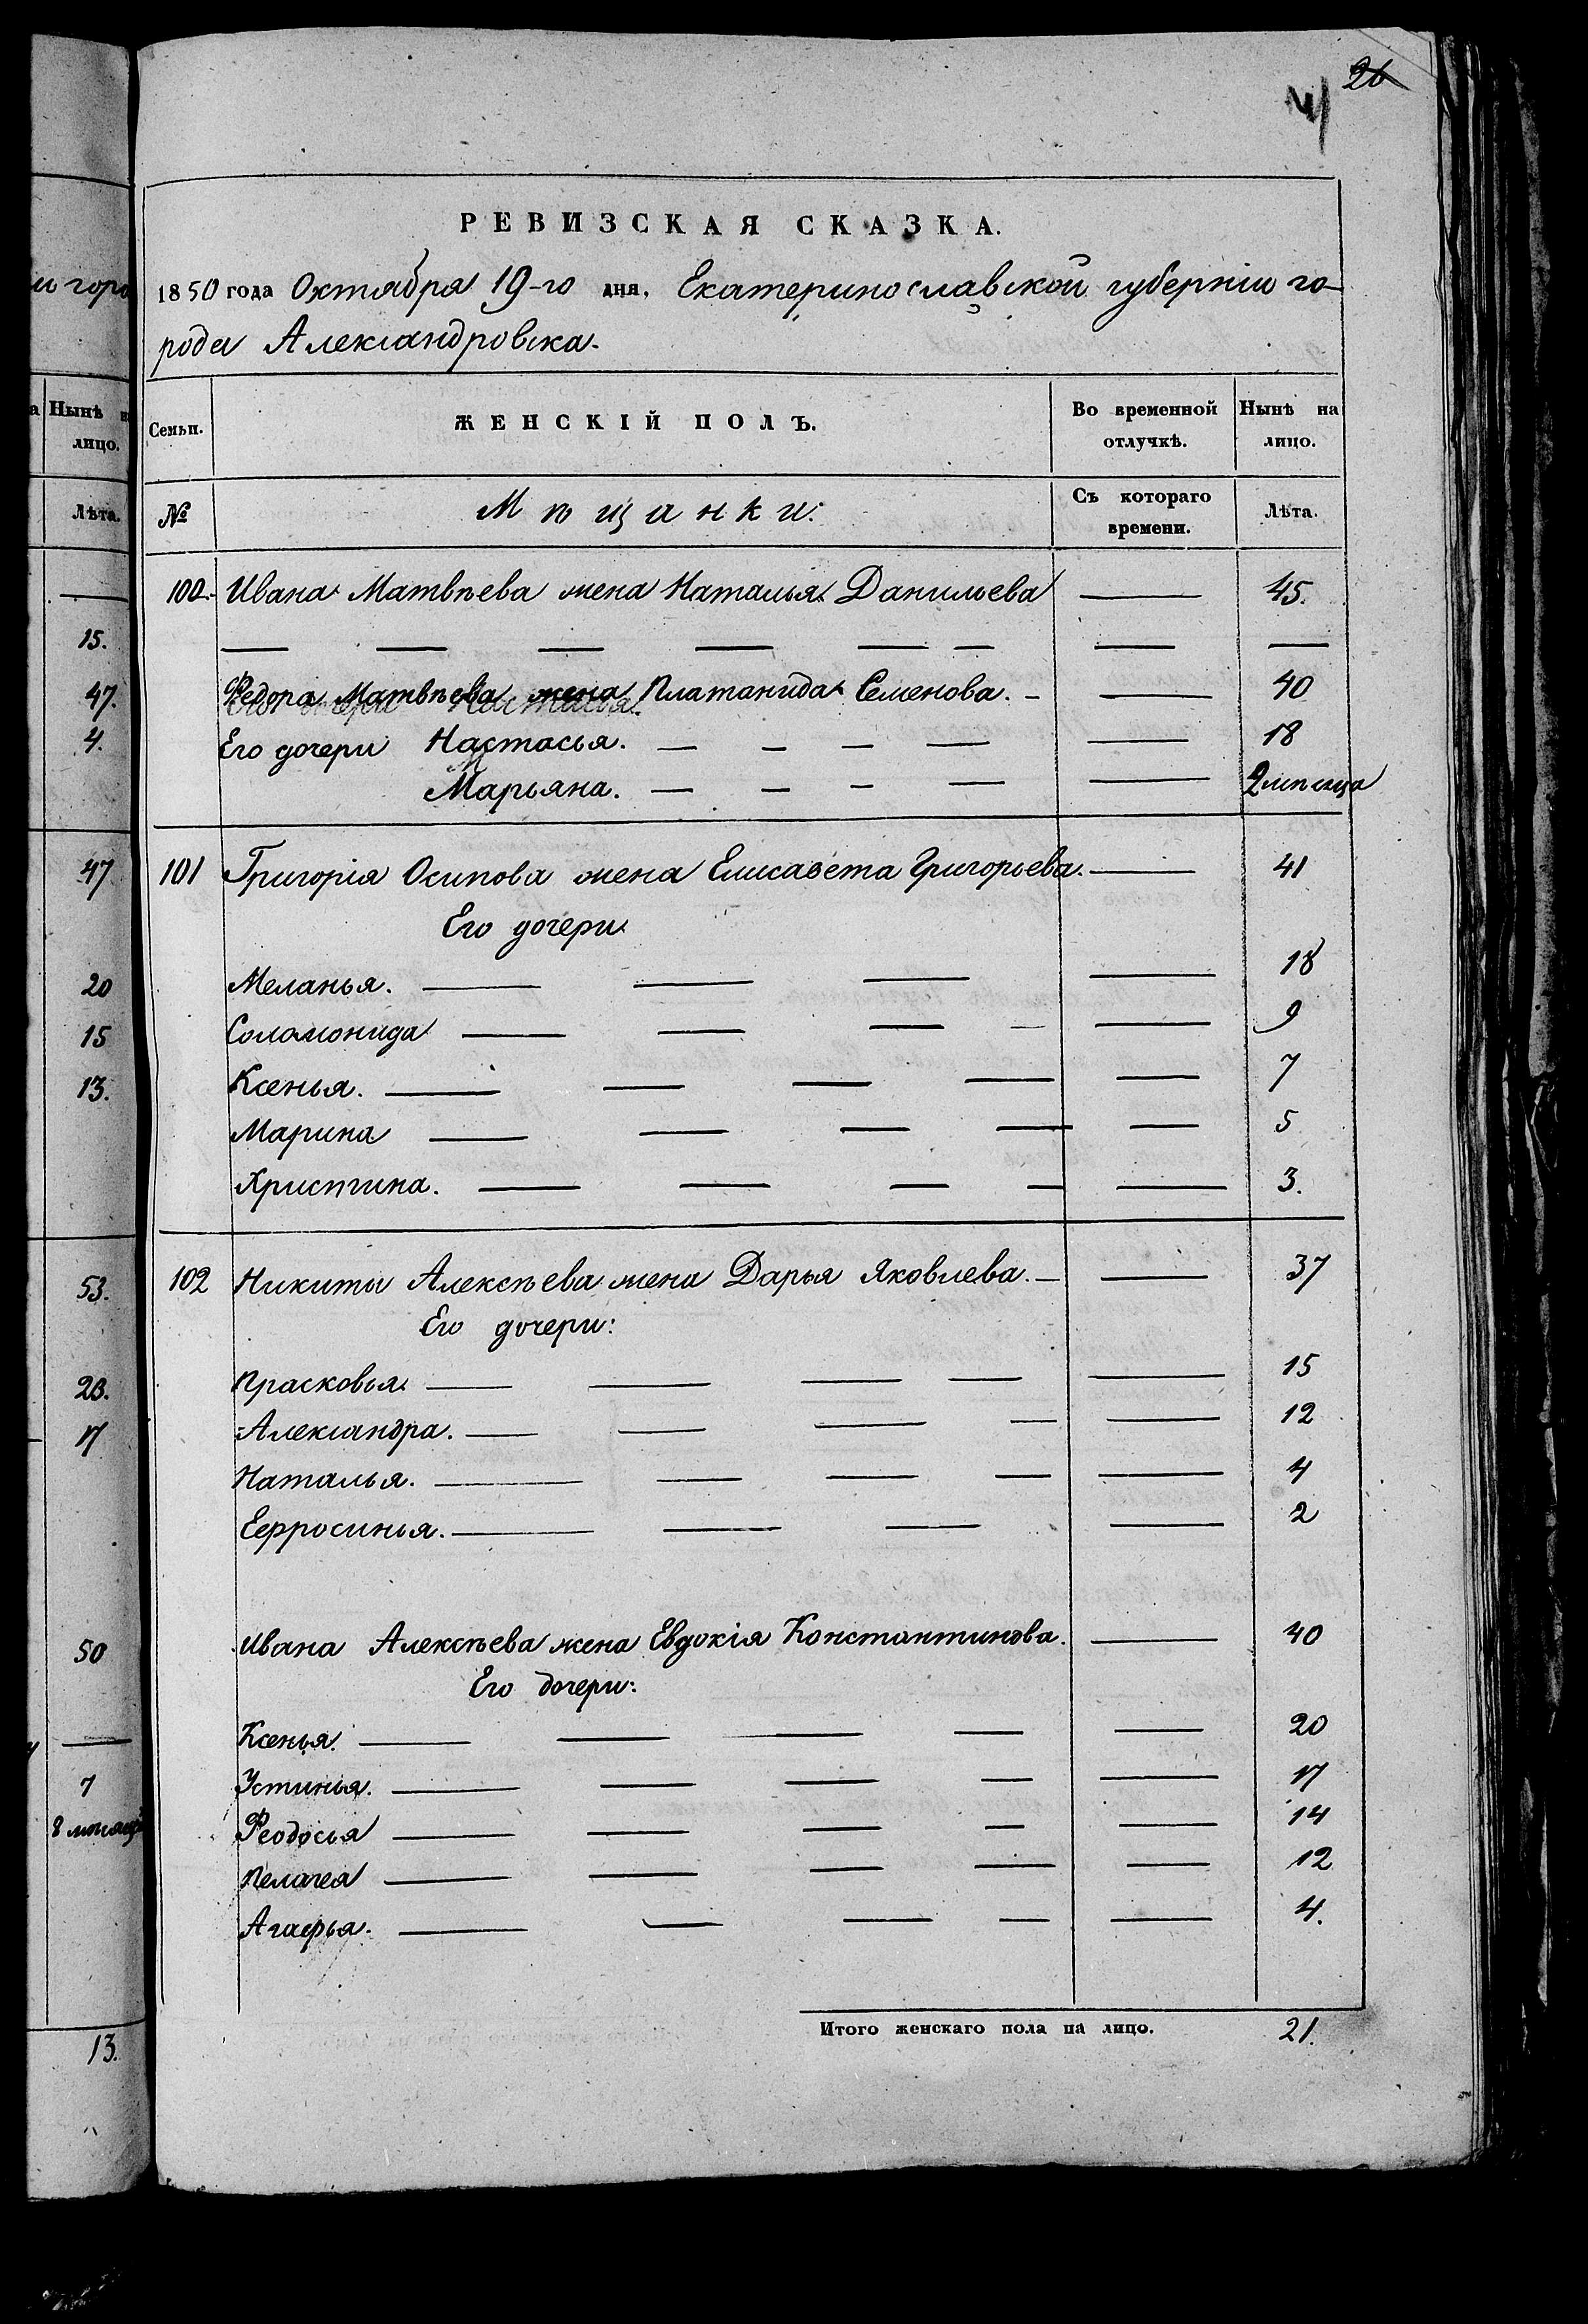 26
41
РЕВИЗСКАЯ СКАЗКА.
1850 года Октября 19-го дня, Екатеринославской губерніи го-
рода Александровска.
Семьи.
ЖЕНСКІЙ ПОЛЪ.
Во временной отлучкѣ.
Нынѣ на лицо.
№
Мѣщанки:
Съ котораго времени.
Лѣта.
100. Ивана Матвѣева жена Наталья Данильева — 45.
— — — — — — — —
Федора Матвѣева жена Платанида Семенова. — — 40
Его дочери Настасья. — — — — — 18
Марьяна. — — — — — 2 мѣсяца
101 Григорія Осипова жена Елисавета Григорьева. — 41
Его дочери
Меланья. — — — — 18
Соломонида — — — — — 9
Ксенья. — — — — — 7
Марина — — — — — 5
Христина. — — — — — 3.
102 Никиты Алексѣева жена Дарья Яковлева. — — 37
Его дочери:
Прасковья — — — — — 15
Александра. — — — — — 12
Наталья. — — — — — 4
Ефросинья. — — — — 2
Ивана Алексѣева жена Евдокія Константинова. — 40
Его дочери:
Ксенья. — — — — — 20
Устинья. — — — — — 17
Феодосья — — — — — 14
Пелагея — — — — — 12
Агафья. — — — — — 4.
Итого женскаго пола на лицо. 21.
Нынѣ
лицо.
Лѣта.
—
15.
47.
4.
47
20
15
13.
53.
23.
17
50
—
7
8 мѣсяц
13.